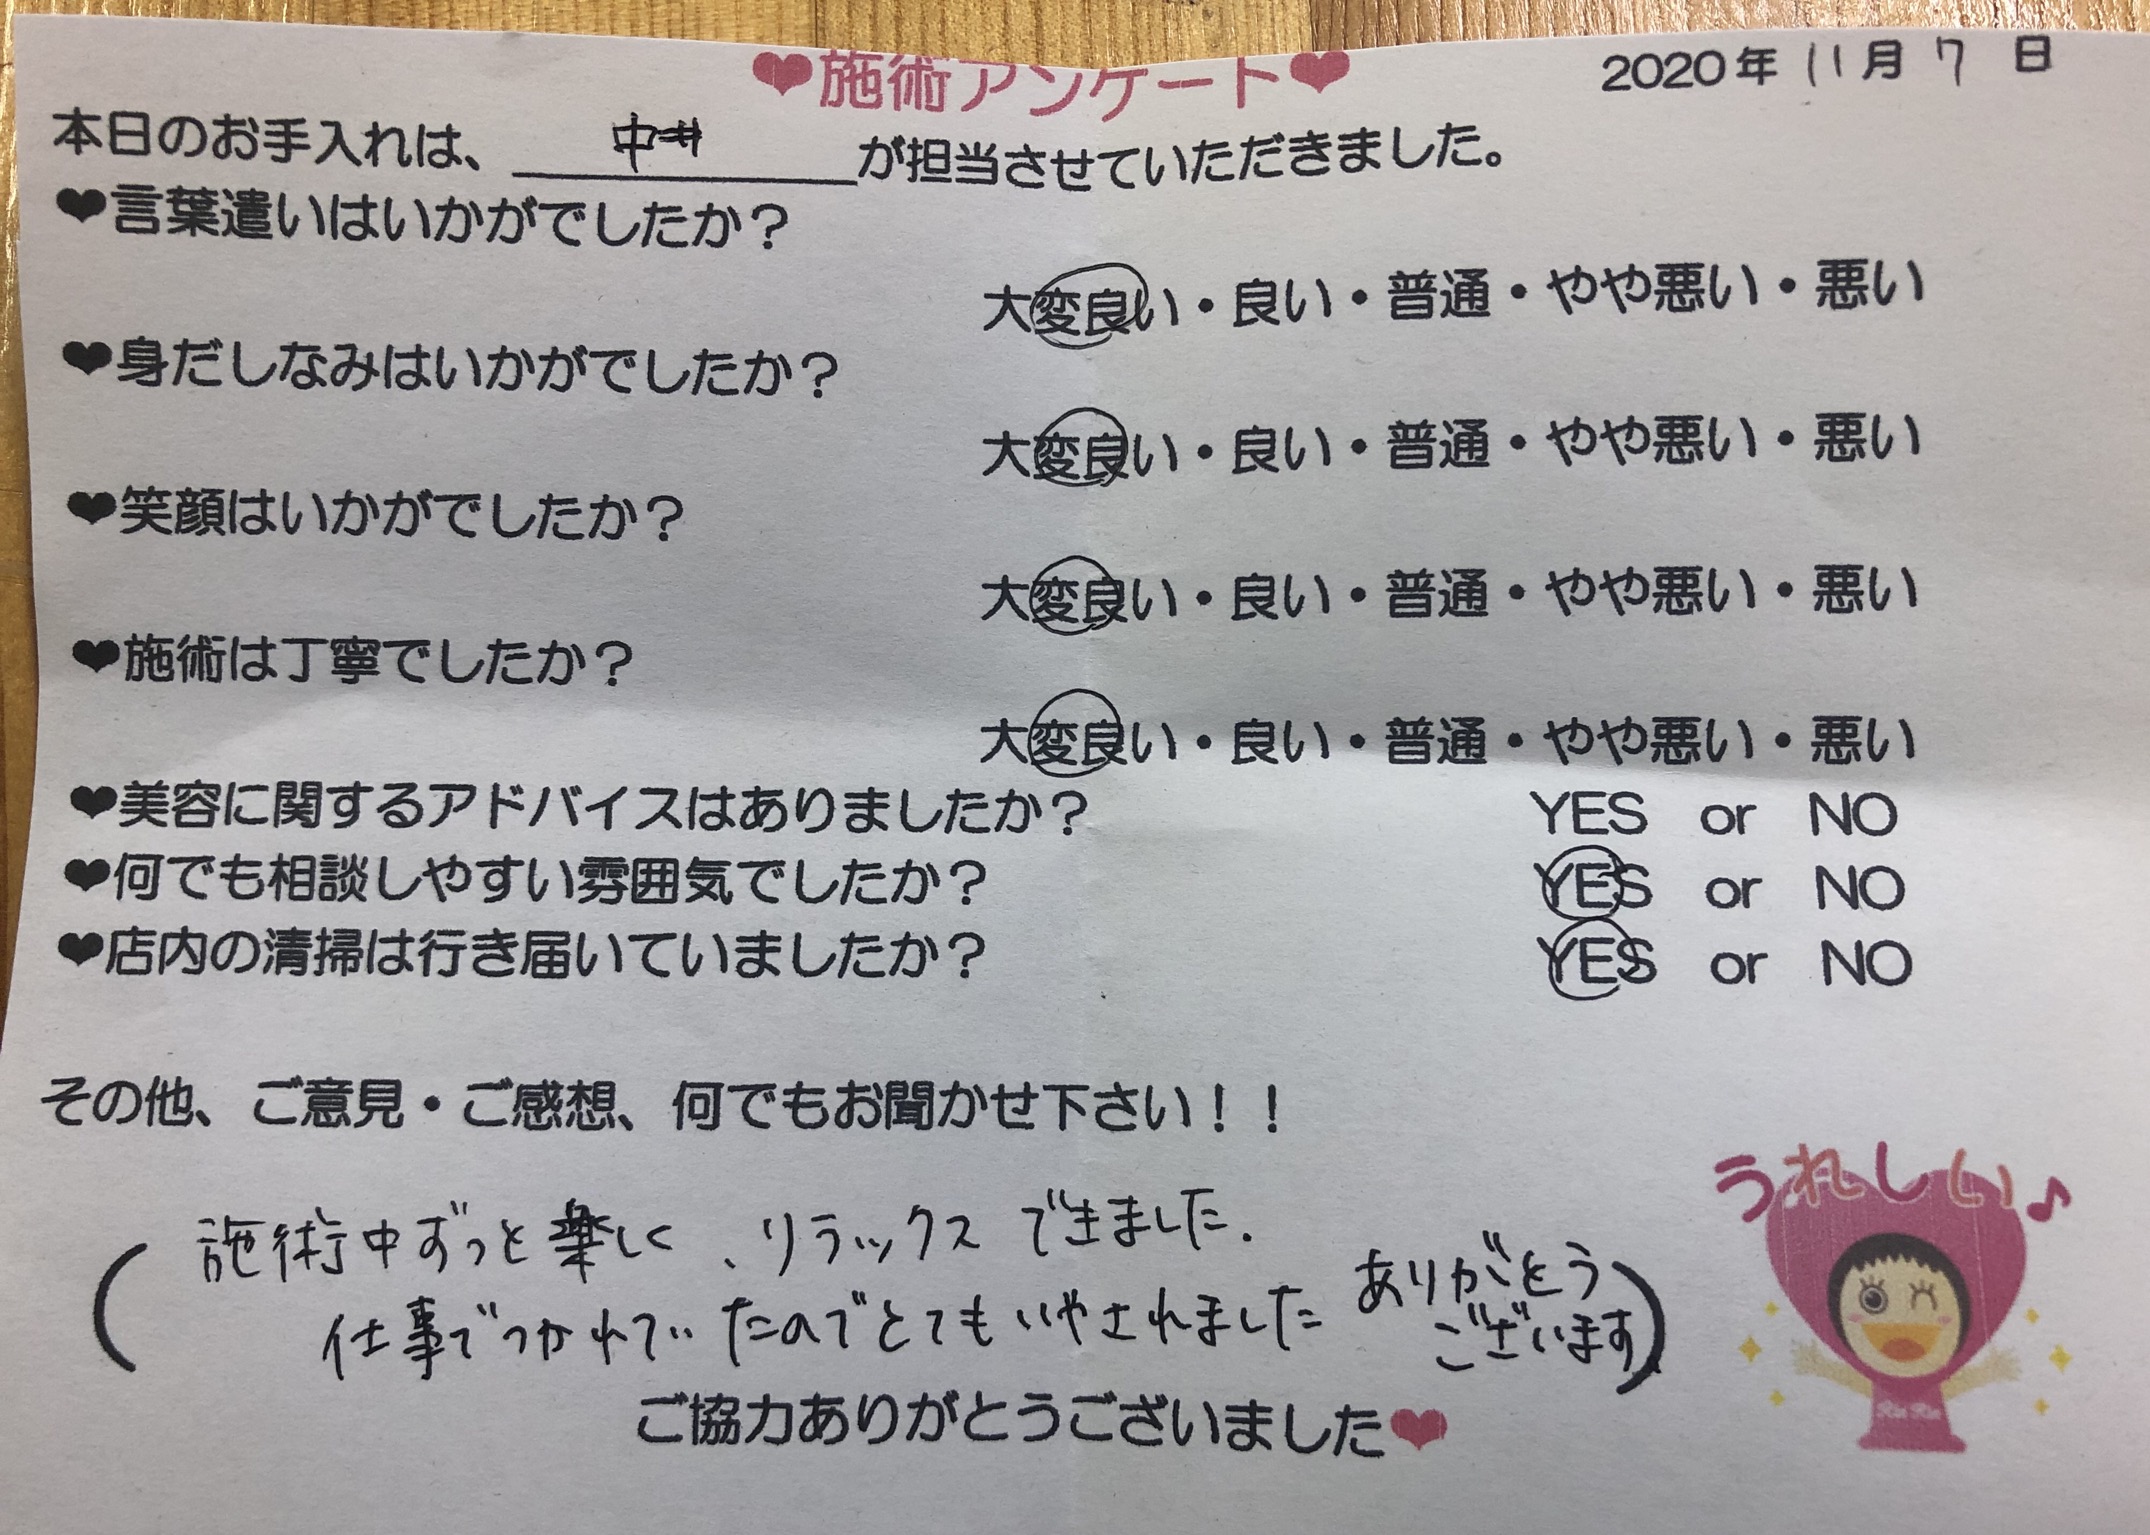 ❤施術アンケート❤
2020年11月7日
本日のお手入れは、中井が担当させていただきました。
❤言葉遣いはいかがでしたか？
大変良い・良い・普通・やや悪い・悪い
❤身だしなみはいかがでしたか？
大変良い・良い・普通・やや悪い・悪い
❤笑顔はいかがでしたか？
大変良い・良い・普通・やや悪い・悪い
❤施術は丁寧でしたか？
大変良い・良い・普通・やや悪い・悪い
❤美容に関するアドバイスはありましたか？ YES or NO
❤何でも相談しやすい雰囲気でしたか？ YES or NO
❤店内の清掃は行き届いていましたか？ YES or NO
その他、ご意見・ご感想、何でもお聞かせ下さい！！
うれしい♪
(施術中ずっと楽しく、リラックスできました.
仕事でつかれていたのでとてもいやされました ありがとう
ございます)
Rin Rin
ご協力ありがとうございました❤